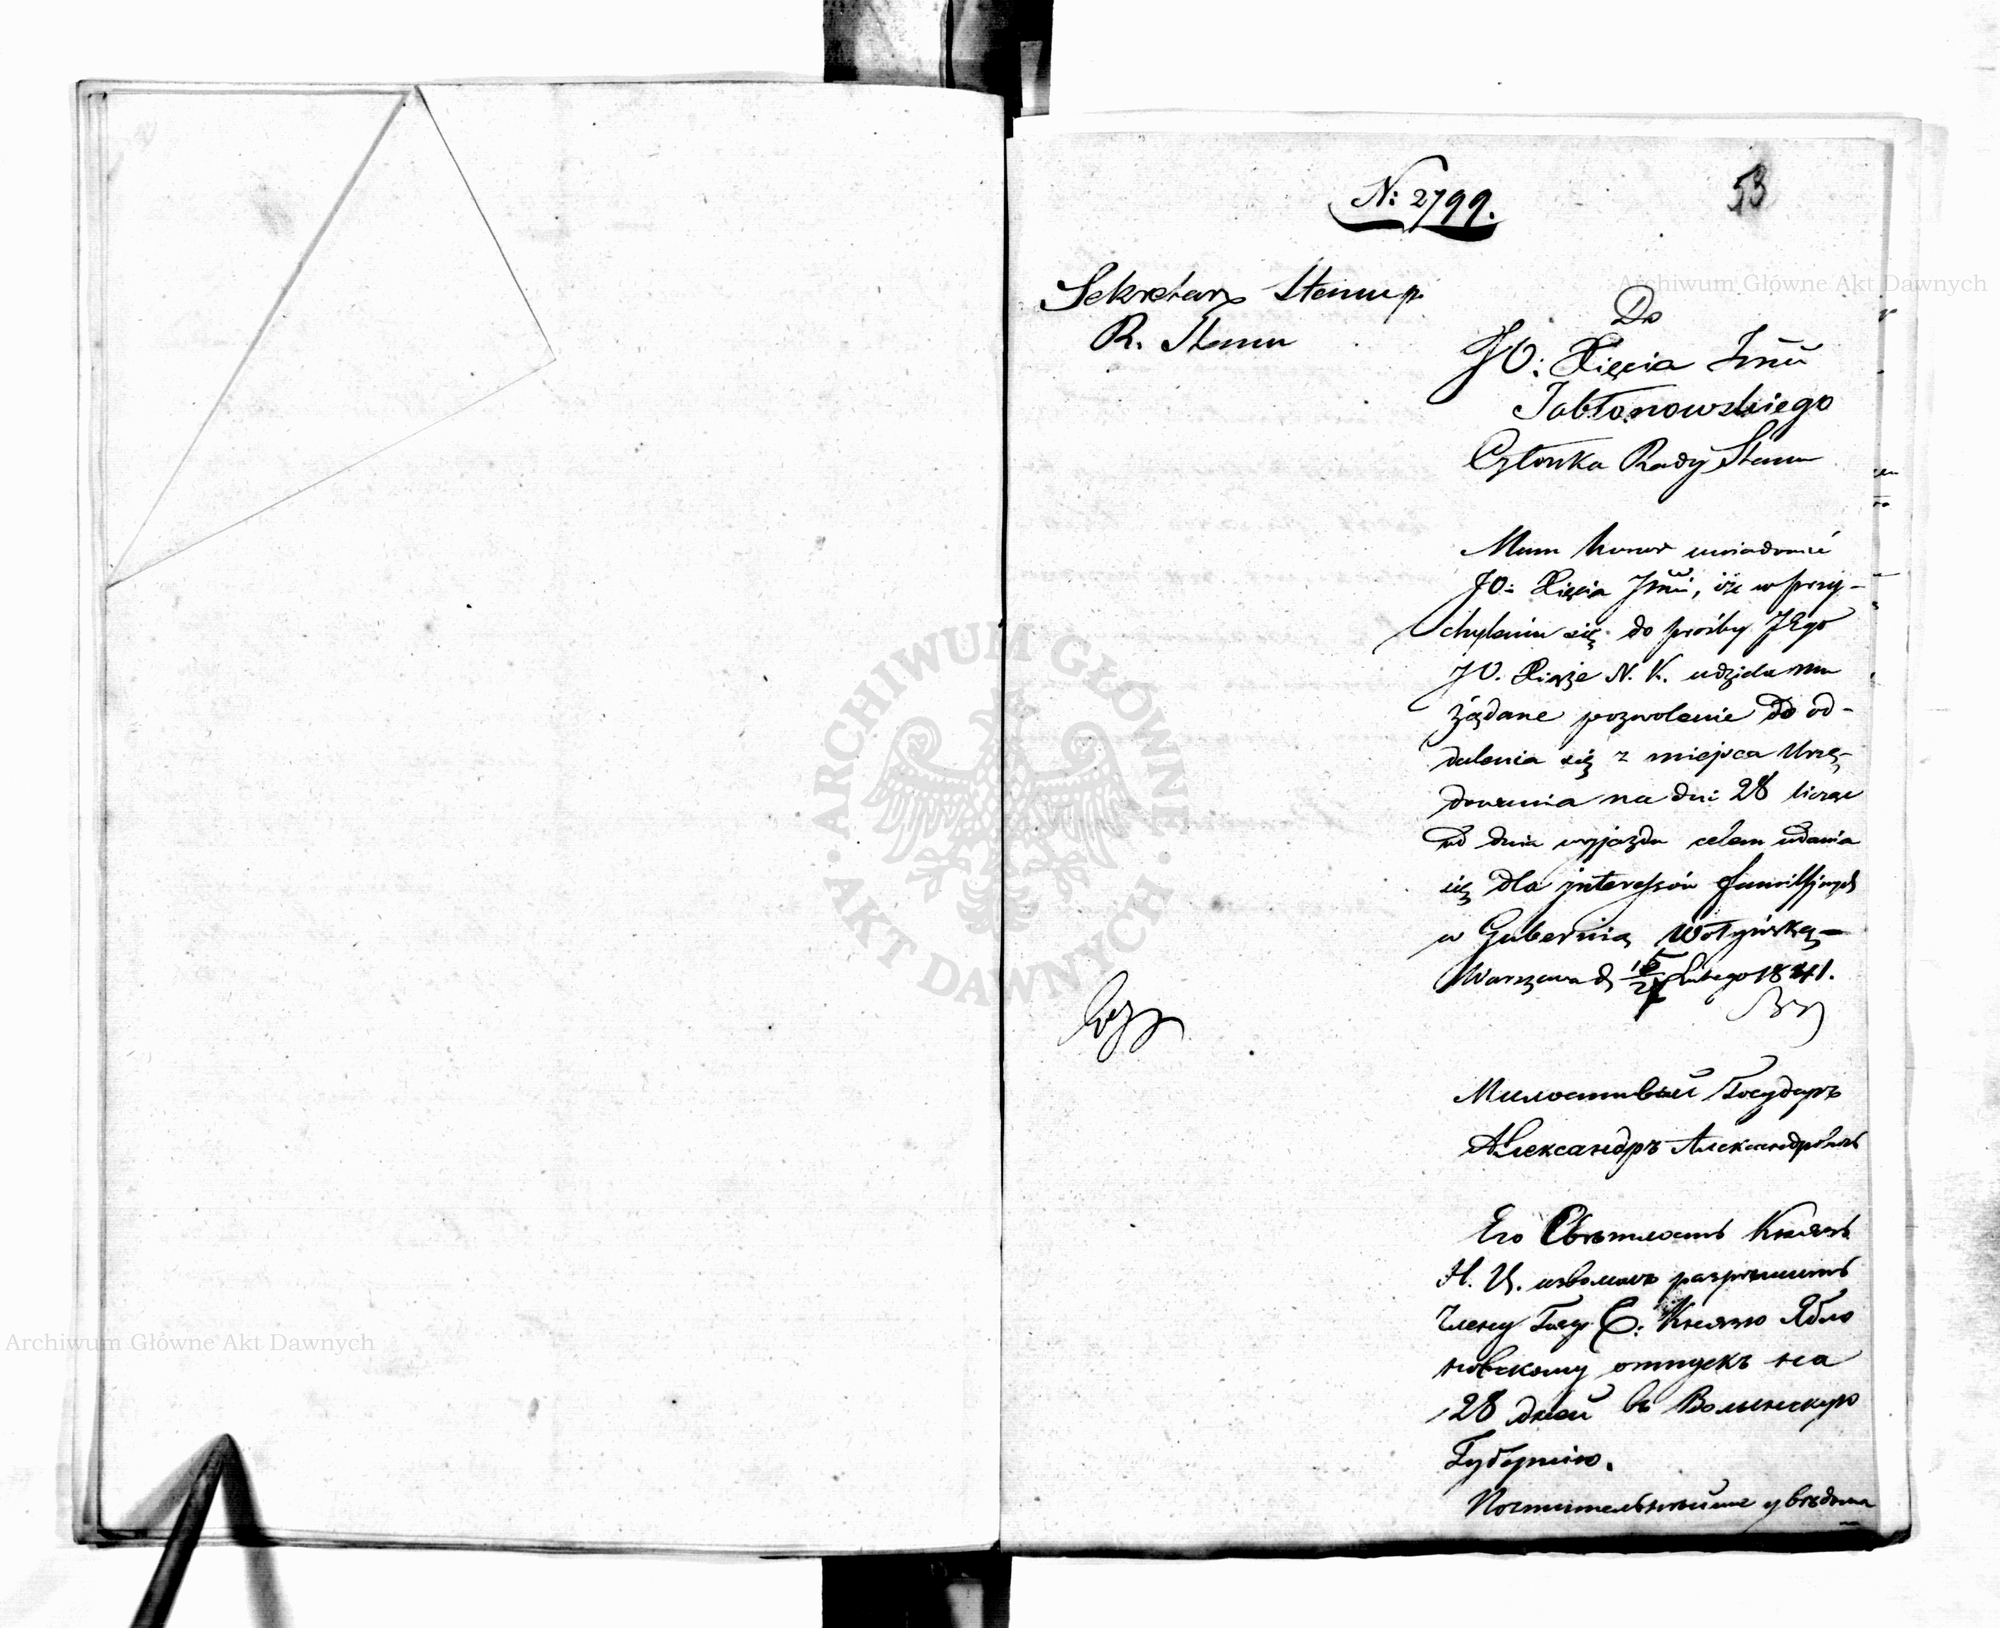 № 2799.
53
Sekretarz Stanu p.
R. Stanu
Do
JO: Xięcia Jmci
Jabłonowskiego
Członka Rady Stanu
Mam honor uwiadomić
JO: Xięcia Jmci, iż w przy-
chyleniu się do prośby JEgo
JO. Xiąże N. K. udziela mu
żądane pozwolenie do od-
dalenia się z miejsca Urzę-
dowania na dni 28 licząc
od dnia wyjazdu celem udania
się dla interessów familijnych
w Gubernią Wołyńską
Warszawa d. Lutego 1841.
Милостивый Государь
Александръ Александровичь
Его Свѣтлость Князь
Н. Ц. изволилъ разрѣшить
Члену Госуд. С: Князю Ябло
новскому отпускъ на
28 дней въ Волынскую
Губернію.
Почтительнѣйше увѣдомля
Archiwum Główne Akt Dawnych
ARCHIWUM GŁÓWNE
AKT DAWNYCH
Archiwum Główne Akt Dawnych